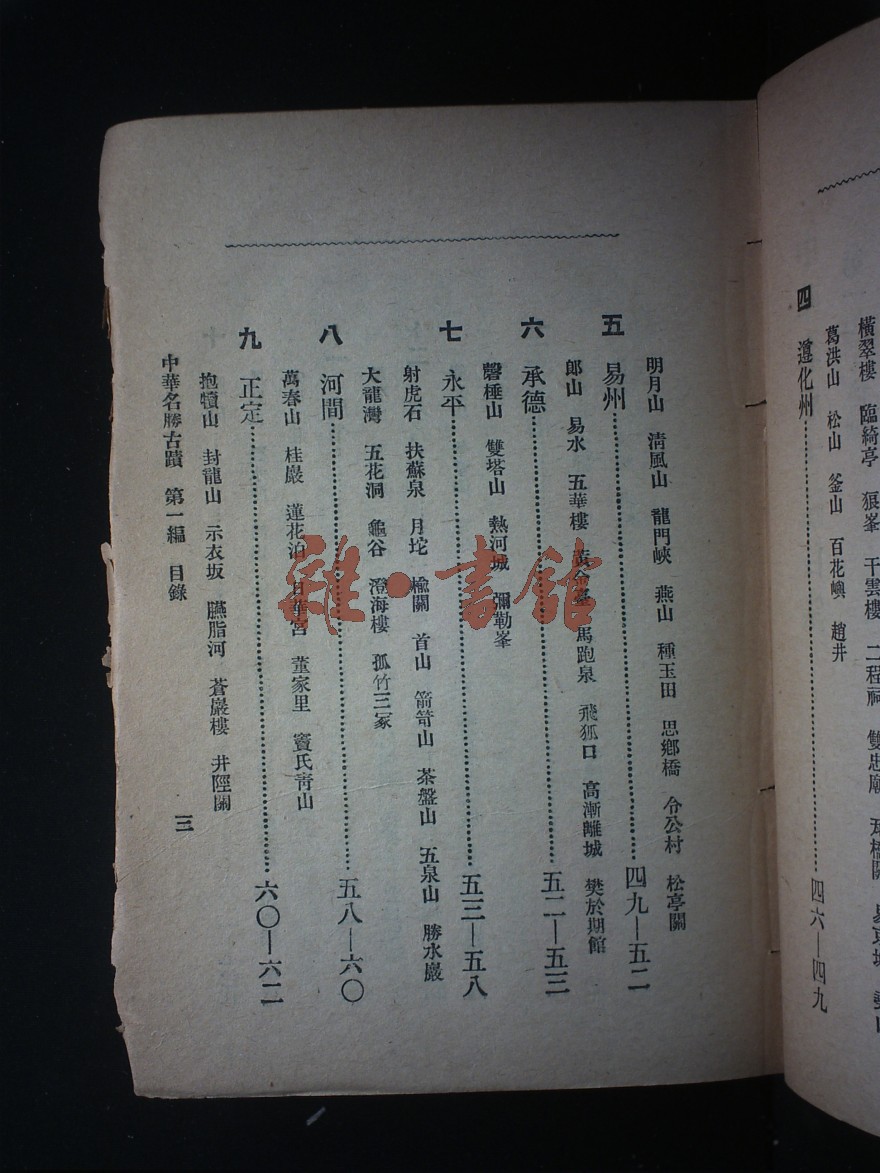 橫翠樓 臨綺亭 狼峯 干雲樓 二程祠 雙忠廟 瓦橋關 易京城
四 遵化州……四六—四九
葛洪山 松山 釜山 百花嶼 趙井
明月山 清風山 龍門峽 燕山 種玉田 思鄉橋 令公村 松亭關
五 易州……四九—五二
郎山 易水 五華樓 黃金臺 馬跑泉 飛狐口 高漸離城 樊於期館
六 承德……五二—五三
磬棰山 雙塔山 熱河城 彌勒峯
七 永平……五三—五八
射虎石 扶蘇泉 月坨 榆關 首山 箭笴山 茶盤山 五泉山 勝水巖
大龍灣 五花洞 龜谷 澄海樓 孤竹三冢
八 河間……五八—六〇
萬春山 桂巖 蓮花泊 日華宮 董家里 竇氏青山
九 正定……六〇—六二
抱犢山 封龍山 示衣坂 臙脂河 蒼巖樓 井陘關
中華名勝古蹟 第一編 目錄
三
雜·書館